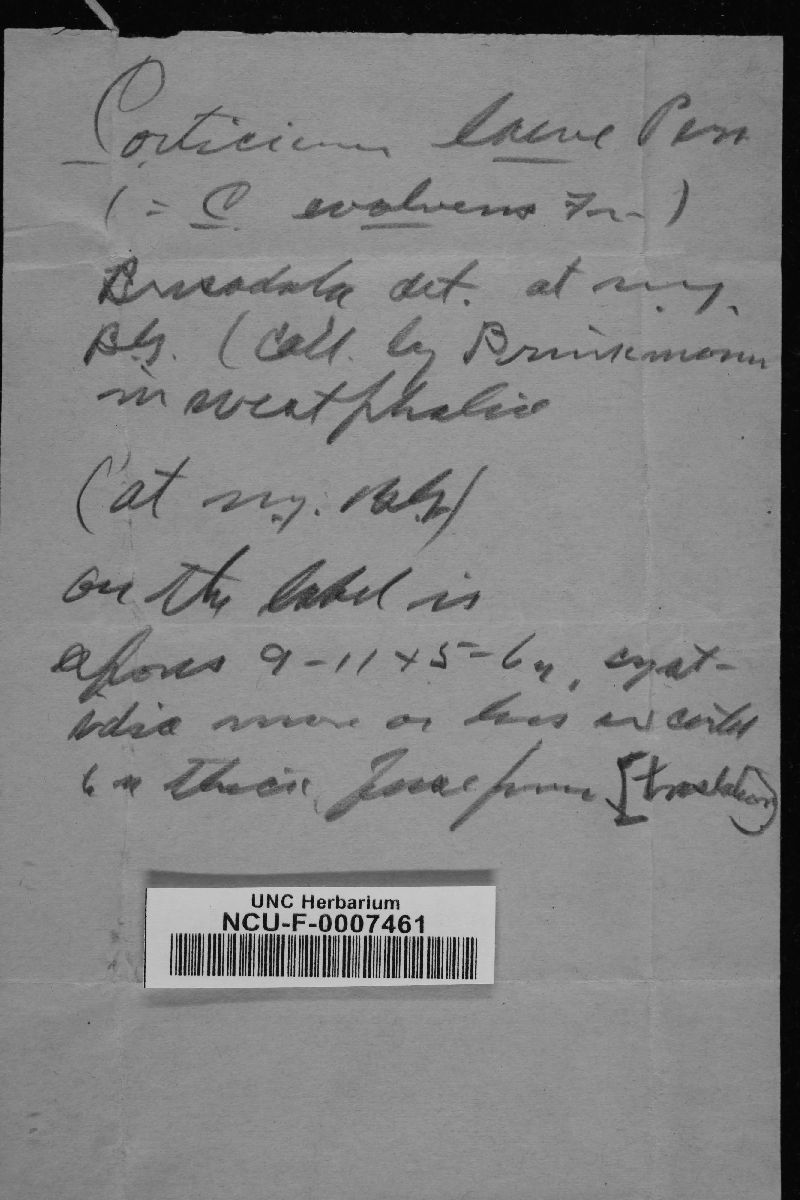 Corticium laeve Pers
(= C. evolvens Fr.)
Bresadola det. at N.Y.
B.G. (Coll. by Brinkmann
in Westphalia
(at N.Y. B.G.)
on the label is
spores 9-11 x 5-6 µ, cyst-
idia more or less
6 µ thick. from [translation]
UNC Herbarium
NCU-F-0007461